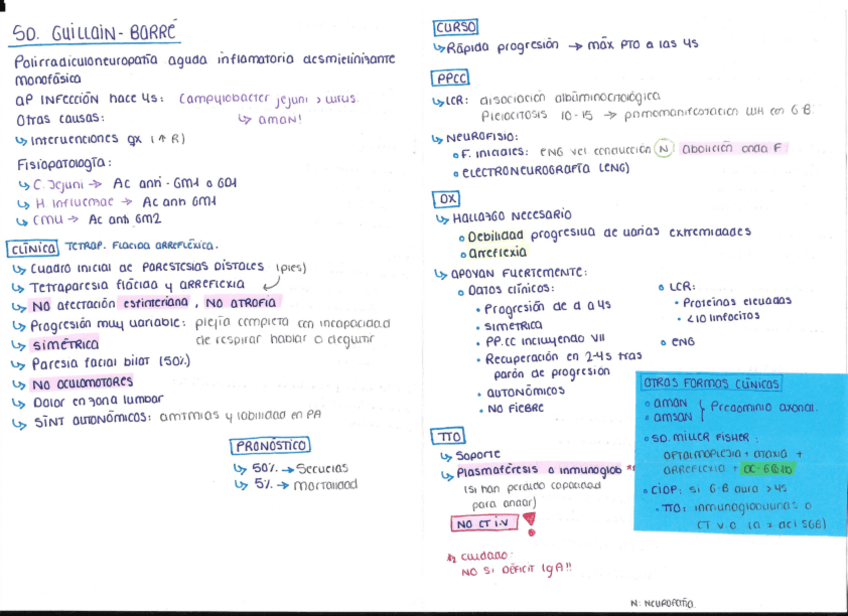 SD. GUILLAIN-BARRÉ
Polirradiculoneuropatía aguda inflamatoria desmielinizante
monofásica
QP INFECCIÓN hace 4s: Campylobacter jejuni > virus.
Otras causas: ↳ AMAN!
↳ Intervenciones qx (↑R)
Fisiopatología:
↳ C. Jejuni → Ac anti-GM1 o GD1
↳ H influenzae → Ac anti GM1
↳ CMV → Ac anti GM2
CLÍNICA TETRAP. FLACIDA ARREFLÉXICA.
↳ Cuadro inicial de PARESTESIAS DISTALES (pies)
↳ Tetraparesia flácida y ARREFLEXIA
↳ NO afectación esfinteriana, NO ATROFIA
↳ Progresión muy variable: plejia completa con incapacidad
de respirar hablar o deglutir
↳ SIMÉTRICA
↳ Paresia facial bilat (50%)
↳ NO OCULOMOTORES
↳ Dolor en zona lumbar
↳ SÍNT AUTONÓMICOS: arritmias y labilidad en PA
PRONÓSTICO
↳ 50% → Secuelas
↳ 5% → mortalidad
CURSO
↳ Rápida progresión → máx PTO a las 4s
PPCC
↳ LCR: disociación albúminocitológica
Pleiocitosis 10-15 → primomanifestación VIH con G-B
↳ NEUROFISIO:
F. iniciales: ENG vel conducción N abolición onda F
ELECTRONEUROGRAFÍA (ENG)
DX
↳ HALLAZGO NECESARIO
Debilidad progresiva de varias extremidades
Arreflexia
↳ APOYAN FUERTEMENTE:
Datos clínicos:
Progresión de d a 4s
SIMÉTRICA
PP.CC incluyendo VII
Recuperación en 2-4s tras
parón de progresión
AUTONÓMICOS
NO FIEBRE
LCR:
Proteinas elevadas
<10 linfocitos
ENG
TTO
↳ Soporte
↳ Plasmaféresis o inmunoglob
(Si han perdido capacidad
para andar)
NO CT i.v !
cuidado:
NO SI DÉFICIT IgA!!
OTRAS FORMAS CLÍNICAS
AMAN } Predominio axonal.
AMSAN
SD. MILLER FISHER:
OFTALMOPLEJIA + ATAXIA +
ARREFLEXIA + AC-GQ1b
CIDP: si G-B dura >4s
TTO: inmunoglobulinas o
CT v.o
N: NEUROPATÍA.